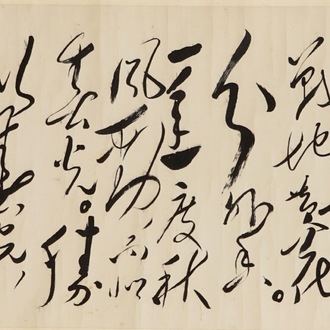 戰地黄花
分外香。
一年一度秋
风劲不似
春光。勝
似春光